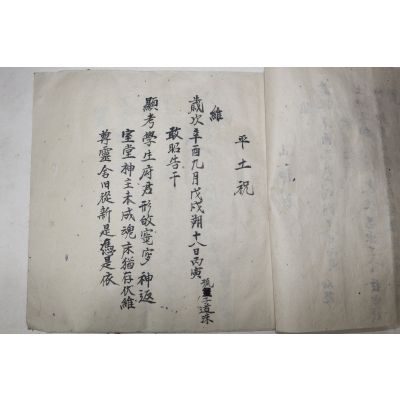 平土祝
維
歲次辛酉九月戊戌朔十八日丙寅
孤子道珠
敢昭告于
顯考學生府君形歸窀穸神返
室堂神主未成魂床猶存伏維
尊靈舍旧從新是憑是依